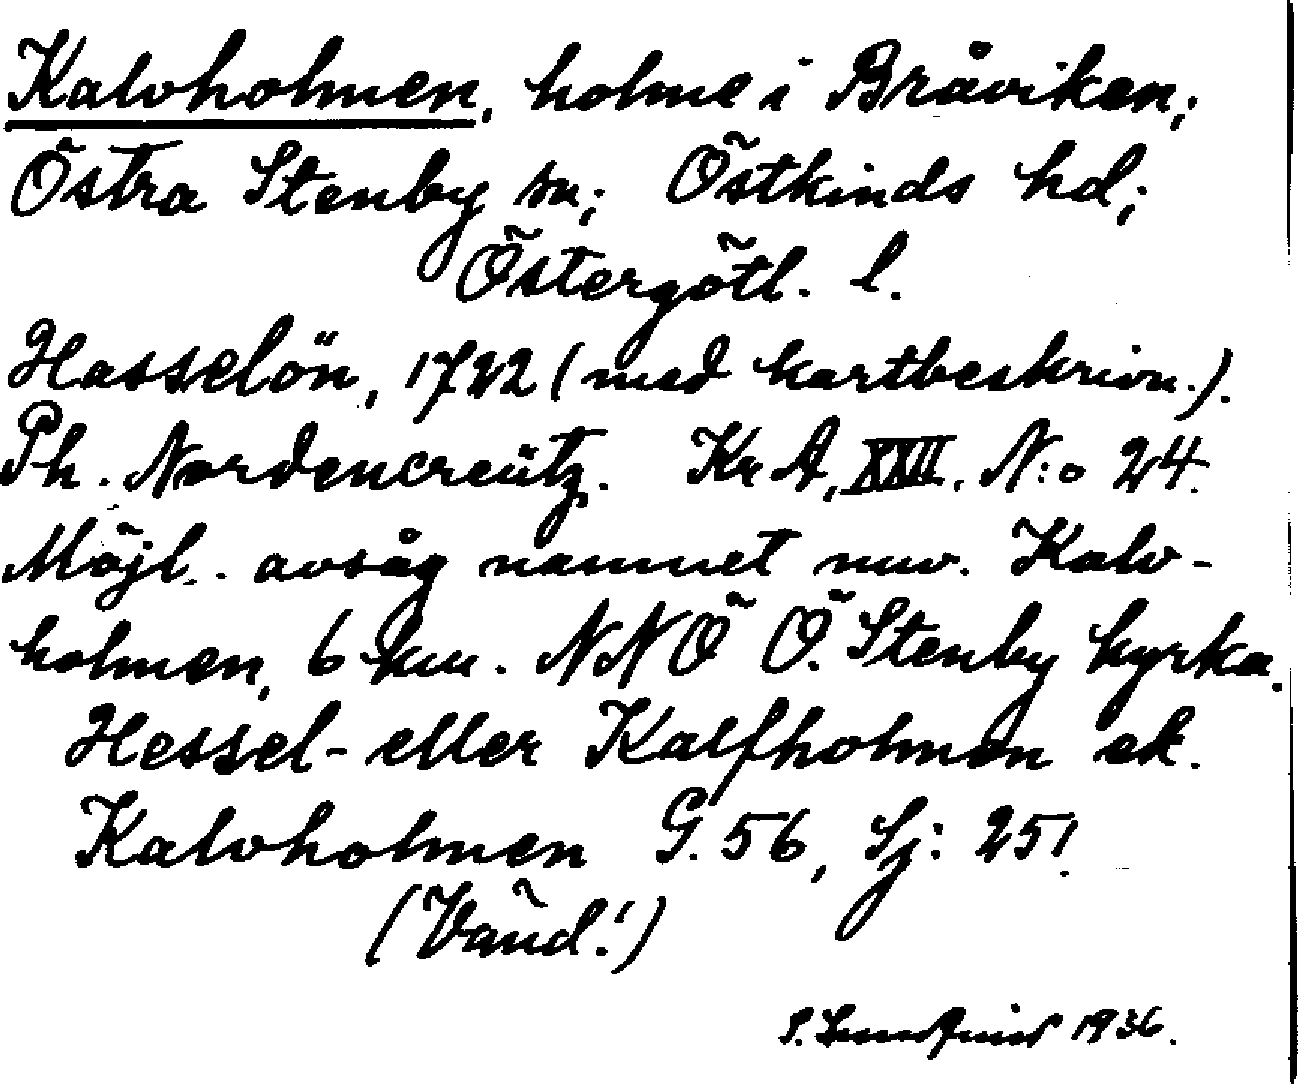 Kalvholmen, holme i Bråviken;
Östra Stenby sn; Östkinds hd;
Östergötl. l.
Hasselön, 1722 (med kartbeskrivn.).
Ph. Nordencreütz. Kr A, XXII. N:o 24.
Möjl. avsåg namnet nuv. Kalv-
holmen, 6 km. NNÖ Ö. Stenby kyrka.
Hessel- eller Kalfholmen ek.
Kalvholmen G. 56, Sj: 251.
(Vänd!)
S. Lundqvist 1936.